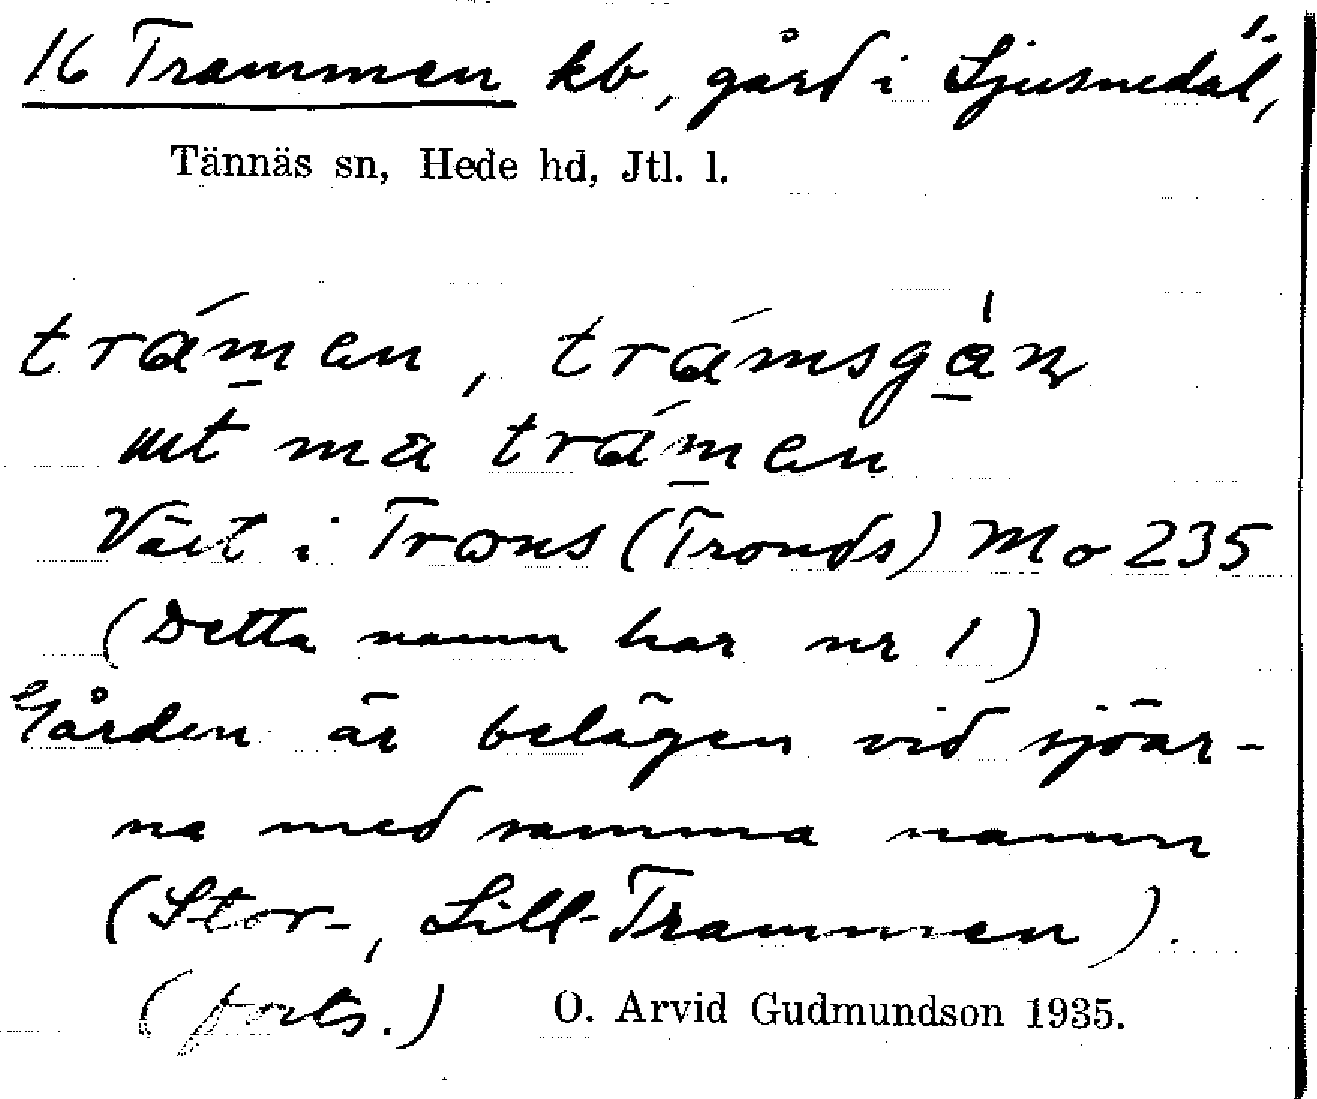 16 Trammen kb, gård i Ljusnedal, 1.
Tännäs sn, Hede hd, Jtl. l.
trámen, trámsgán
ut ma trámen
Väst i Trøns (Tronds) Mo 235
(Detta namn har nr 1)
Gården är belägen vid sjöar-
na med samma namn
(Stor-, Lill-Trammen).
(forts.) O. Arvid Gudmundson 1935.